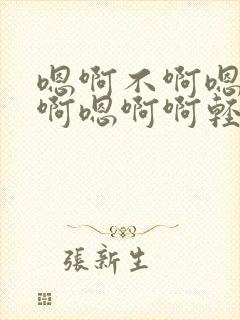 嗯啊不啊嗯
啊嗯啊啊轻
張新生